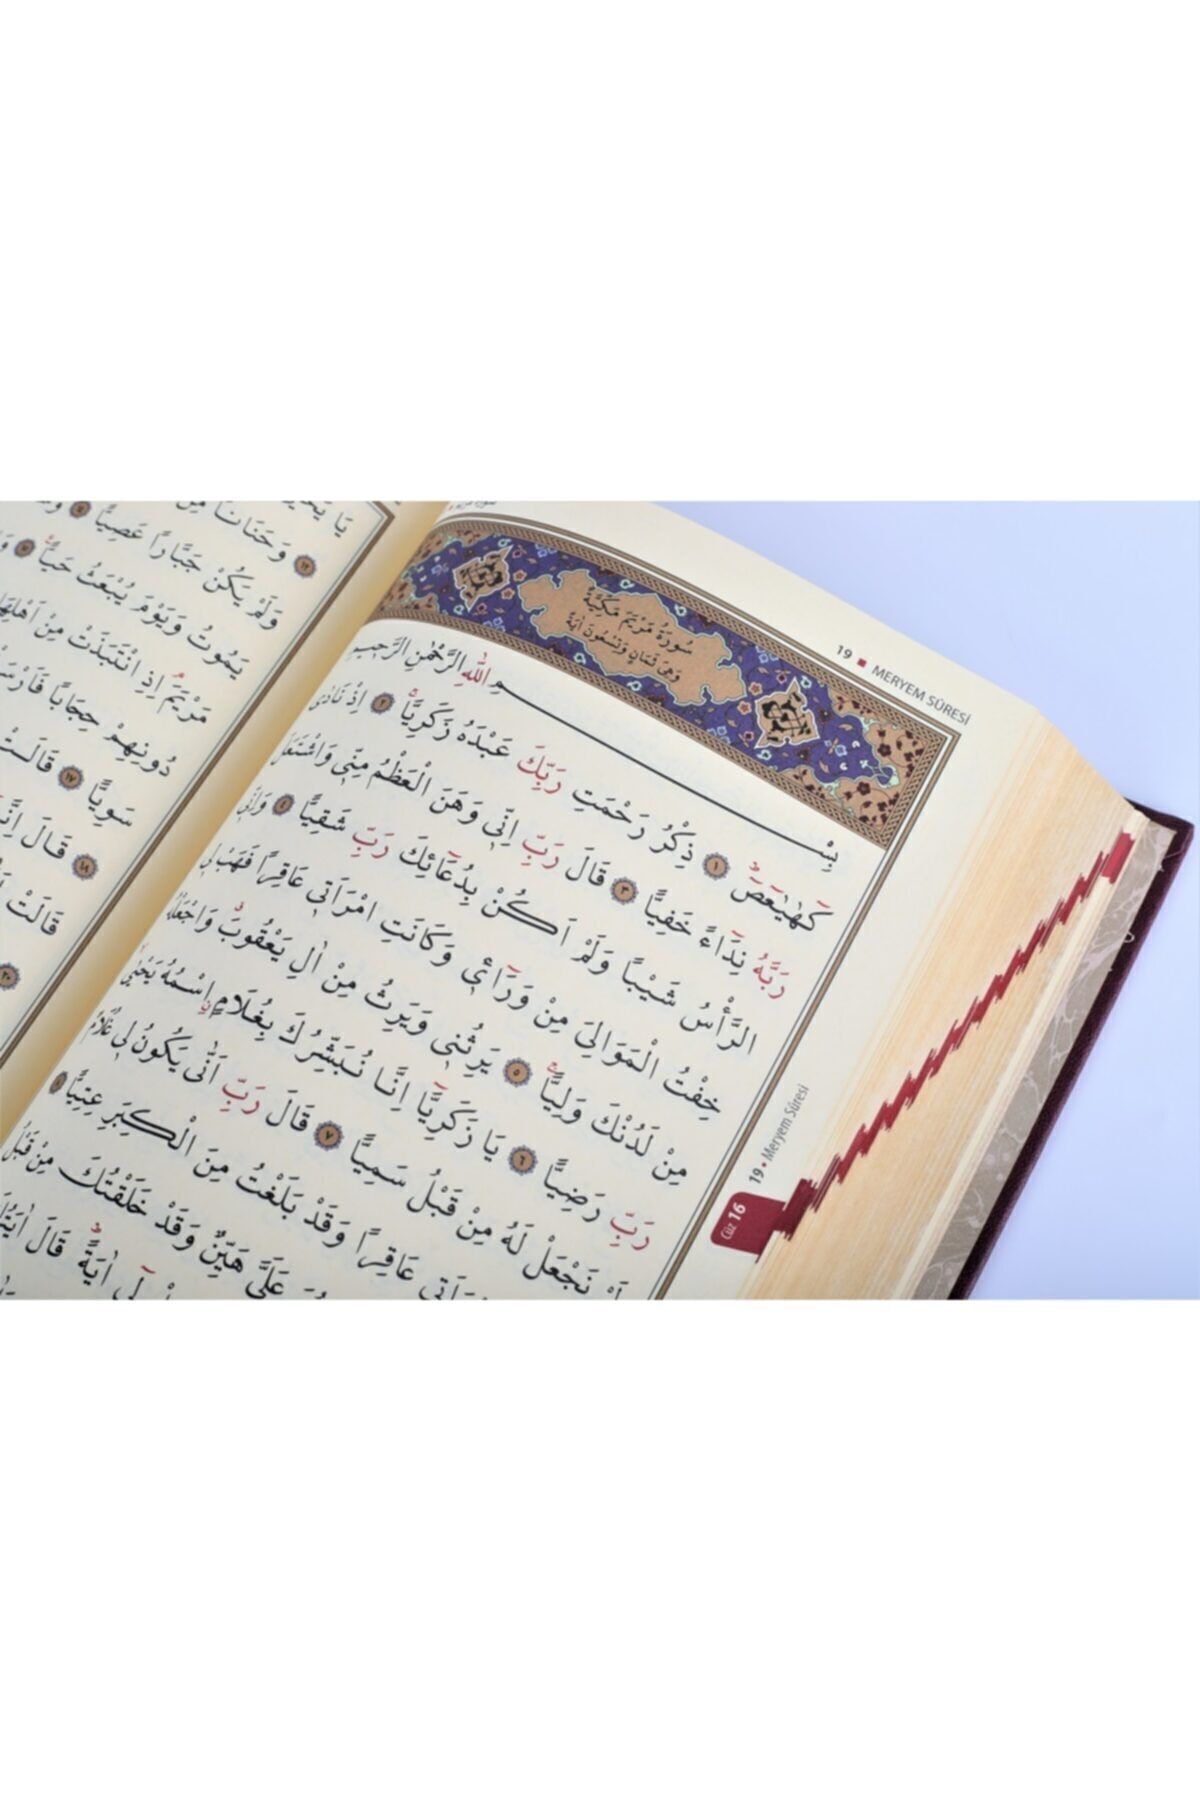 19 ▪ MERYEM SÛRESİ
سُورَةُ مَرْيَمَ مَكِّيَّةٌ
وَهِيَ ثَمَانٍ وَتِسْعُونَ اٰيَةً
بِسْمِ اللّٰهِ الرَّحْمٰنِ الرَّحٖيمِ
كٓهٰيٰعٓصٓ ﴿١﴾ ذِكْرُ رَحْمَتِ رَبِّكَ عَبْدَهُ زَكَرِيَّاۚ ﴿٢﴾ اِذْ نَادٰى
رَبَّهُ نِدَٓاءً خَفِيًّا ﴿٣﴾ قَالَ رَبِّ اِنّٖي وَهَنَ الْعَظْمُ مِنّٖي وَاشْتَعَلَ
الرَّأْسُ شَيْبًا وَلَمْ اَكُنْ بِدُعَٓائِكَ رَبِّ شَقِيًّا ﴿٤﴾ وَاِنّٖي
خِفْتُ الْمَوَالِيَ مِنْ وَرَٓائٖي وَكَانَتِ امْرَاَتٖي عَاقِرًا فَهَبْ لٖي
مِنْ لَدُنْكَ وَلِيًّاۙ ﴿٥﴾ يَرِثُنٖي وَيَرِثُ مِنْ اٰلِ يَعْقُوبَۗ وَاجْعَلْهُ
رَبِّ رَضِيًّا ﴿٦﴾ يَا زَكَرِيَّٓا اِنَّا نُبَشِّرُكَ بِغُلَامٍ اسْمُهُ يَحْيٰىۙ
لَمْ نَجْعَلْ لَهُ مِنْ قَبْلُ سَمِيًّا ﴿٧﴾ قَالَ رَبِّ اَنّٰى يَكُونُ لٖي غُلَامٌ
عَاقِرًا وَقَدْ بَلَغْتُ مِنَ الْكِبَرِ عِتِيًّا ﴿٨﴾
عَلَيَّ هَيِّنٌ وَقَدْ خَلَقْتُكَ مِنْ قَبْلُ
اٰيَةًۜ قَالَ اٰيَتُكَ
19 • Meryem Sûresi
Cüz 16
وَحَنَانًا مِنْ
﴿١٣﴾ وَلَمْ يَكُنْ جَبَّارًا عَصِيًّا ﴿١٤﴾
يَمُوتُ وَيَوْمَ يُبْعَثُ حَيًّا ﴿١٥﴾
مَرْيَمَۢ اِذِ انْتَبَذَتْ مِنْ اَهْلِهَا
دُونِهِمْ حِجَابًا
سَوِيًّا ﴿١٧﴾ قَالَتْ
﴿١٨﴾ قَالَ اِنَّمَا
قَالَتْ
﴿٢٠﴾